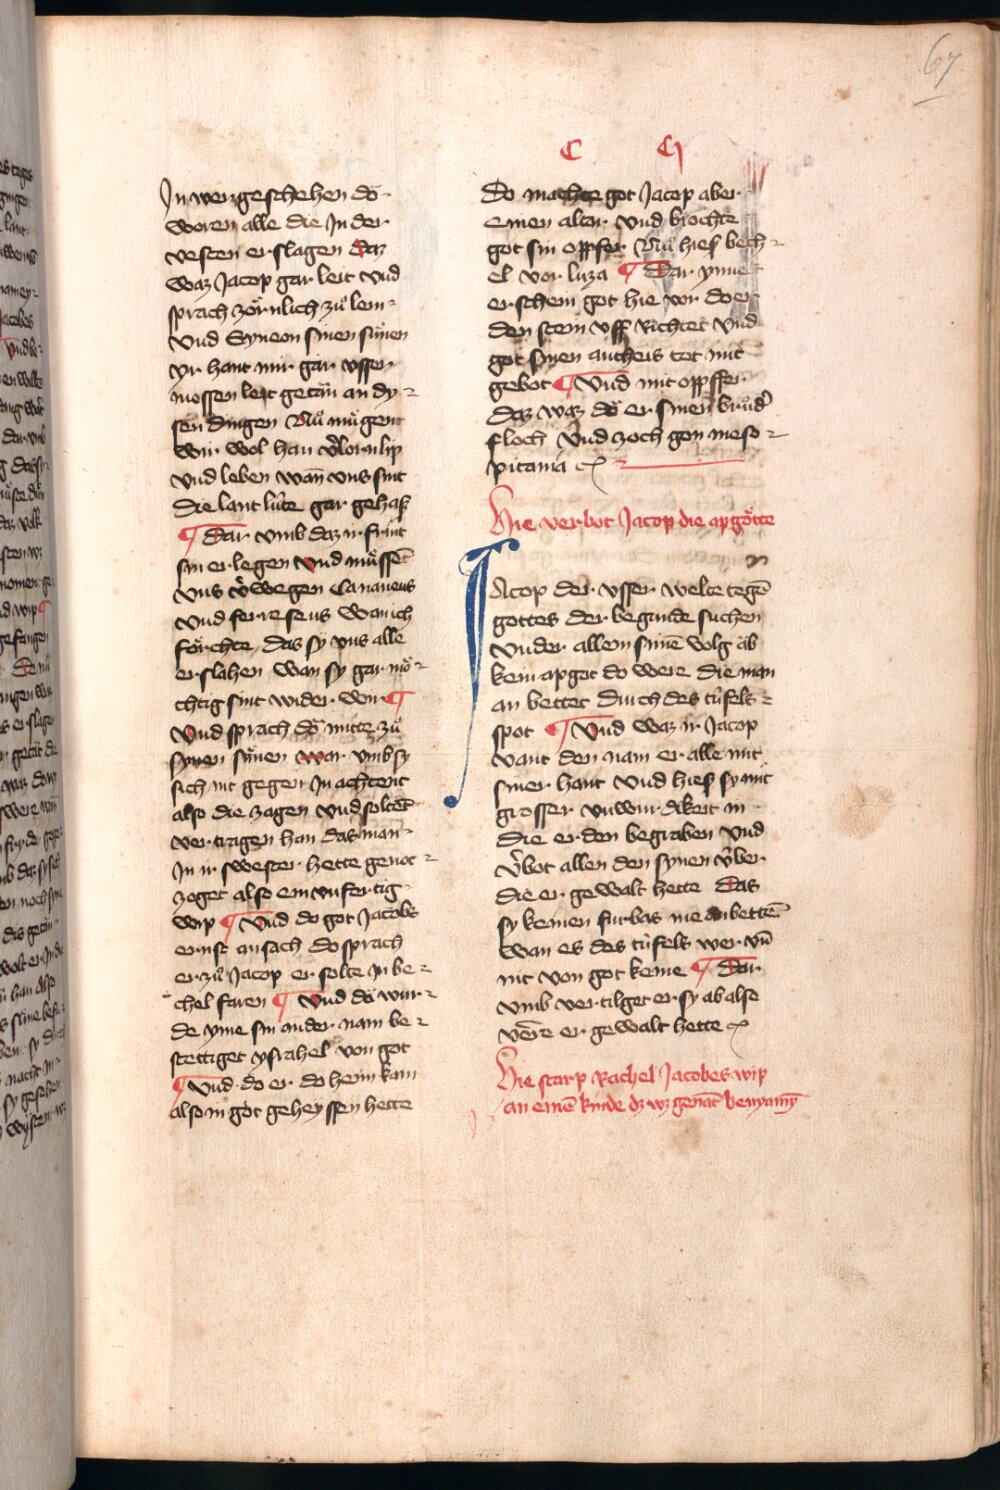 67
C CJ
In wer geschehen do
woren alle die In der
vesten er slagen Daz
waz Jacop gar leit vnd
sprach zörnlich zů lem
vnd Symeon sinen sünen
yr hant mir gar vsser
mossen leit getan an dy
sen dingen Nů mügent
wir wol han v̓lorn lip
vnd leben wan̄ vns sint
die lant lüte gar gehaß
¶ Dar vmb daz ir frünt
sin er legen vnd müssen̄
vns v̓wegen Cananeus
vnd ferreseus wan ich
förchte das sy vns alle
er slahen wan sy gar mö
chtig sint wider wir ¶
vnd sprach do mitte zů
synen sünen war vmb sy
sich nit gegen In achtent
also die zagen vnd soltent
ver tragen han das man
In ir swester hette genot
zoget also ein vnfertig
wip ¶ Vnd do got Jacobs
ernst an sach do sprach
er zů Jacop er solte In be
chel faren ¶ Vnd do wur
de yme sin ander nam be
stettiget ysrahel von got
¶ Vnd do er do heim kam
also in got geheyssen hette
Do machte got Jacop aber
einen altar vnd brochte
got sin opffer Nů hieß bech
el vor luza ¶ Dar ynne
erschein got hie vor do er
den stein vff Richtet vnd
got sinen antheis tet mit
gebot ¶ Vnd mit opffer
daz waz do er sinen brůd̓
floch vnd zoch gon meso
pitania
Hie verbot Jacop die apgötte
n
JAcop der vsser welte tegē
gottes der begunde suchen
vnder allem sinē volg ab
kein apgot do were die man
an bettet durch des tüfels
spot ¶ Vnd waz ir Jacop
vant den nam er alle mit
siner hant vnd hieß sy mit
grosser vnwirdikeit in
die erden begraben vnd
v̓bot allen den synen v̓ber
die er gewalt hette Das
sy keinen fürbas me anbettē
wan es des tüfels wer vn̄
nit von got keme ¶ Dar
vmb vertilget er sy ab alse
verre er gewalt hette
Hie starp Rachel Jacobes wip
an einē kinde dz wz genāt benyamȳ